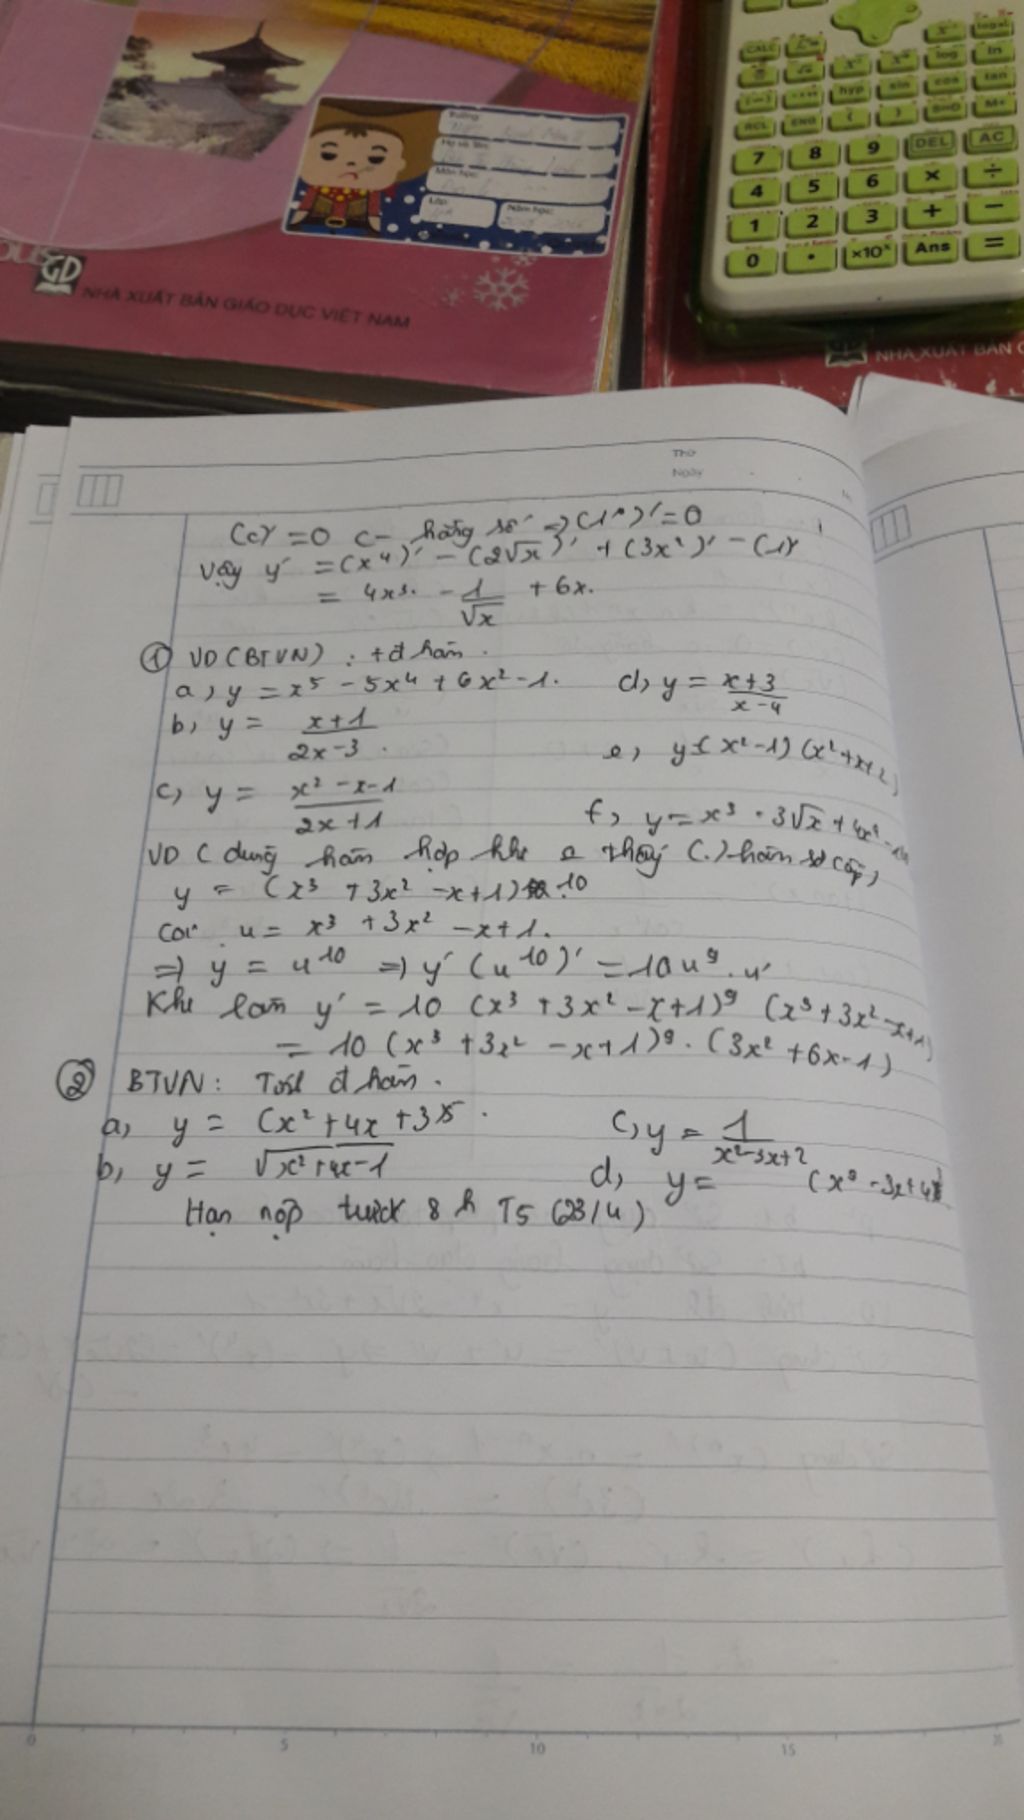 Trường:
Họ và tên:
Môn học:
Lớp:
Năm học:
GD
NHÀ XUẤT BẢN GIÁO DỤC VIỆT NAM
CALC
hyp sin cos tan
RCL ENG ( ) S⇔D M+
7 8 9 DEL AC
4 5 6 × ÷
1 2 3 + −
0 · ×10ˣ Ans =
NHÀ XUẤT BẢN G
Thứ
Ngày
(c)' = 0 c - hằng số => (1)' = 0
Vậy y' = (x⁴)' - (2√x)' + (3x²)' - (1)'
= 4x³ - 1/√x + 6x.
① VD (BTVN) : + đ hàm.
a, y = x⁵ - 5x⁴ + 6x² - 1. d, y = (x+3)/(x-4)
b, y = (x+1)/(2x-3). e, y = (x²-1)(x²+x+2)
c, y = (x²-x-1)/(2x+1) f, y = x³ - 3√x + 4x⁴
VD (dùng hàm hợp khi thấy (.) hàm sơ cấp)
y = (x³ + 3x² - x + 1) 10
Coi u = x³ + 3x² - x + 1.
=> y = u¹⁰ => y' (u¹⁰)' = 10u⁹.u'
Khi làm y' = 10 (x³ + 3x² - x + 1)⁹ (x³ + 3x² - x + 1)
= 10 (x³ + 3x² - x + 1)⁹. (3x² + 6x - 1)
② BTVN: Tính đ hàm.
a, y = (x² + 4x + 3 5. c, y = 1/(x²-3x+2)
b, y = √(x²+4x-1) d, y = (x³ - 3x + 4
Hạn nộp trước 8 h T5 (23/4)
0 5 10 15